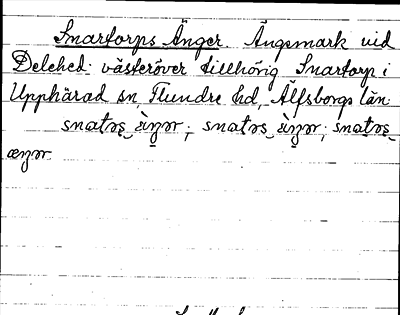 Snartorps Änger. Ängsmark vid
Delehed västeröver tillhörig Snartorp i
Upphärad sn, Flundre hd, Älfsborgs län.
snatǝs ä̀ŋǝr; snatǝs ä̀ŋǝr; snatǝs
æŋǝr.